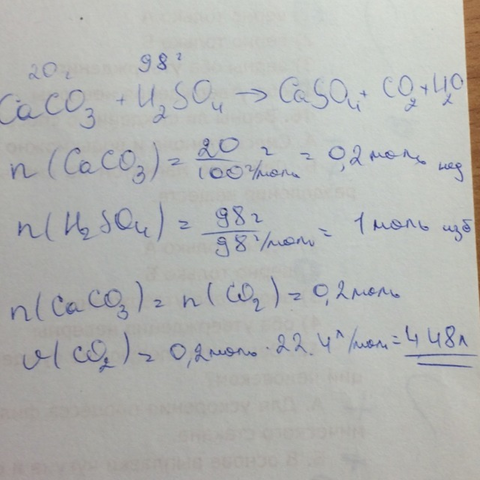 20г 98г
CaCO₃ + H₂SO₄ → CaSO₄ + CO₂ + H₂O
n(CaCO₃) = 20 г / 100 г/моль = 0,2 моль нед
n(H₂SO₄) = 98 г / 98 г/моль = 1 моль изб
n(CaCO₃) = n(CO₂) = 0,2 моль
v(CO₂) = 0,2 моль · 22.4 л/моль = 4 48 л